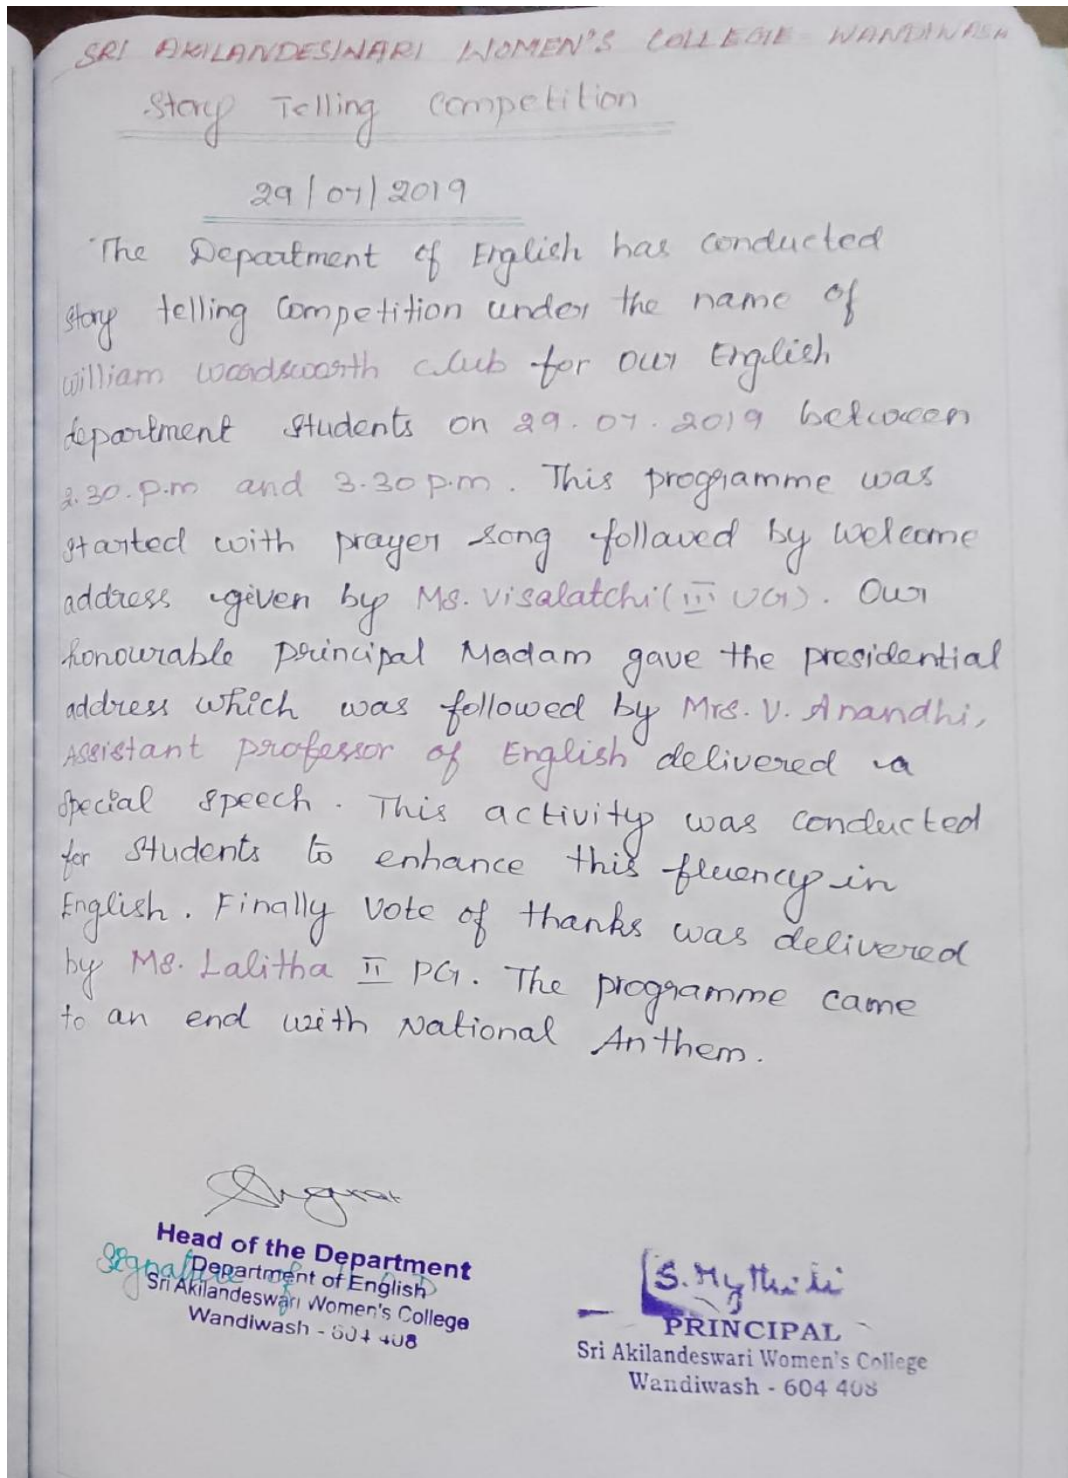 SRI AKILANDESWARI WOMEN'S COLLEGE WANDIWASH
Story Telling Competition
29/07/2019
The Department of English has conducted
story telling Competition under the name of
William Wordsworth club for our English
department students on 29.07.2019 between
2.30.p.m and 3.30 p.m. This programme was
started with prayer song followed by welcome
address given by Ms. Visalatchi (III UG). Our
honourable principal Madam gave the presidential
address which was followed by Mrs. V. Anandhi,
Assistant professor of English delivered a
special speech. This activity was conducted
for students to enhance this fluency in
English. Finally Vote of thanks was delivered
by Ms. Lalitha II PG. The programme came
to an end with National Anthem.
Head of the Department
Signature of
Department of English
Sri Akilandeswari Women's College
Wandiwash - 604 408
S. Mythili
PRINCIPAL
Sri Akilandeswari Women's College
Wandiwash - 604 408